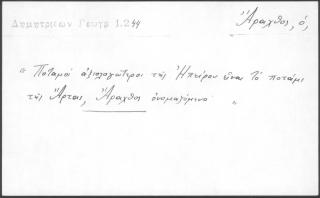 Δημητριέων Γεωγρ 1.244
Ἄραχθος, ὁ,
" Ποταμοί ἀξιολογώτεροι τῆς Ἠπείρου εἶναι τό ποτάμι
τῆς Ἄρτας, Ἄραχθος ὀνομαζόμενο "